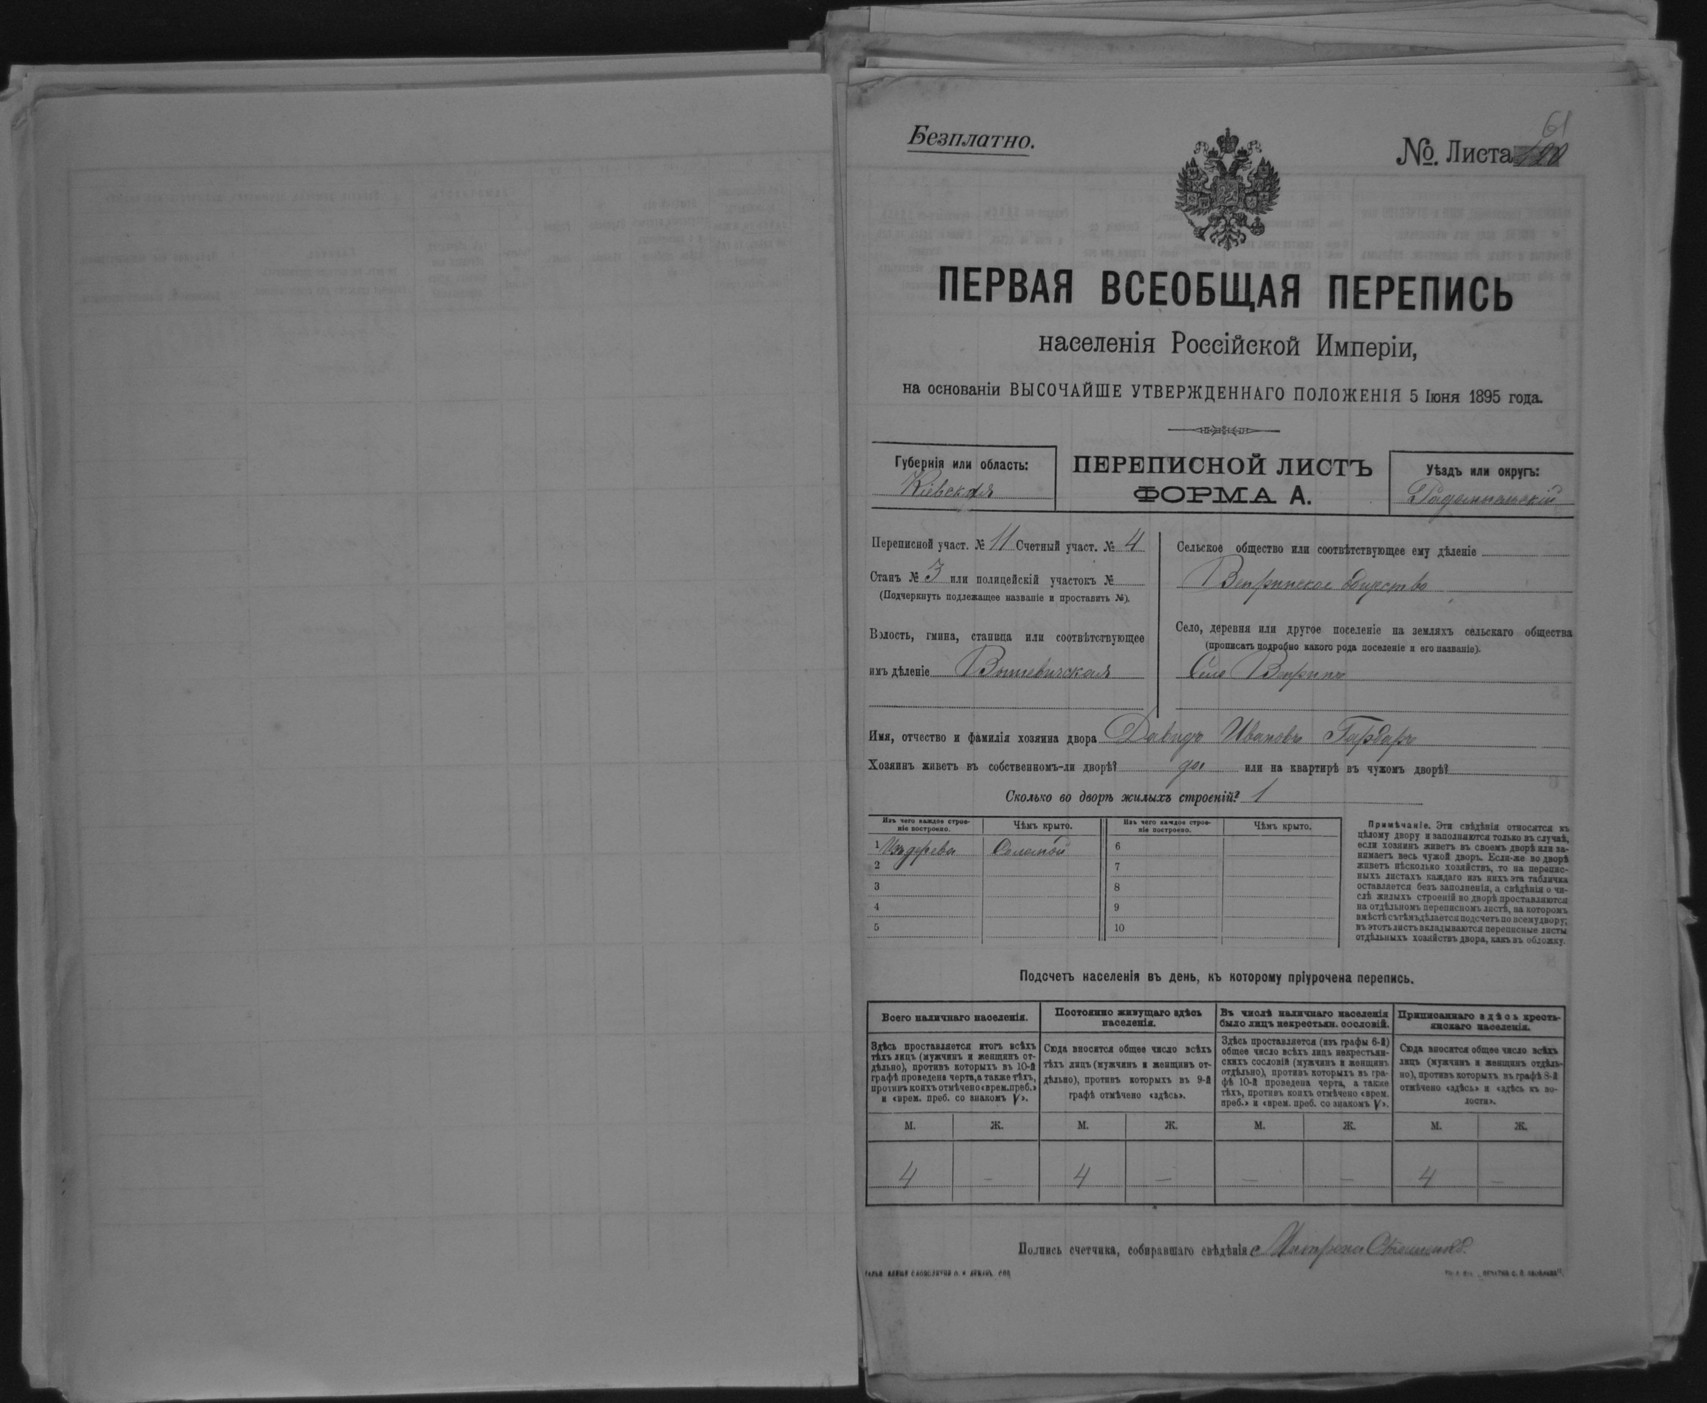 Безплатно.
№. Листа
61
ПЕРВАЯ ВСЕОБЩАЯ ПЕРЕПИСЬ
населенія Россійской Имперіи,
на основаніи ВЫСОЧАЙШЕ УТВЕРЖДЕННАГО ПОЛОЖЕНІЯ 5 Іюня 1895 года.
Губернія или область:
Кіевская
ПЕРЕПИСНОЙ ЛИСТЪ
ФОРМА А.
Уѣздъ или округъ:
Радомысльскій
Переписной участ. № 11 Счетный участ. № 4
Станъ № 3 или полицейскій участокъ №
(Подчеркнуть подлежащее названіе и проставить №).
Волость, гмина, станица или соотвѣтствующее
имъ дѣленіе Вышевичская
Сельское общество или соотвѣтствующее ему дѣленіе
Вырпинское общество
Село, деревня или другое поселеніе на земляхъ сельскаго общества
(прописать подробно какого рода поселеніе и его названіе).
Село
Имя, отчество и фамилія хозяина двора Давидъ Ивановъ
Хозяинъ живетъ въ собственномъ-ли дворѣ? да или на квартирѣ въ чужомъ дворѣ?
Сколько во дворѣ жилыхъ строеній? 1
Изъ чего каждое строе-
ніе построено.
Чѣмъ крыто.
Изъ чего каждое строе-
ніе построено.
Чѣмъ крыто.
1 Изъ дерева Соломой 6
2 7
3 8
4 9
5 10
Примѣчаніе. Эти свѣдѣнія относятся къ
цѣлому двору и заполняются только въ случаѣ,
если хозяинъ живетъ въ своемъ дворѣ или за-
нимаетъ весь чужой дворъ. Если-же во дворѣ
живетъ нѣсколько хозяйствъ, то на перепис-
ныхъ листахъ каждаго изъ нихъ эта табличка
оставляется безъ заполненія, а свѣдѣнія о чи-
слѣ жилыхъ строеній во дворѣ проставляются
на отдѣльномъ переписномъ листѣ, на которомъ
вмѣстѣ съ тѣмъ дѣлается подсчетъ по всему двору;
въ этотъ листъ вкладываются переписные листы
отдѣльныхъ хозяйствъ двора, какъ въ обложку.
Подсчетъ населенія въ день, къ которому пріурочена перепись.
Всего наличнаго населенія.
Здѣсь проставляется итогъ всѣхъ
тѣхъ лицъ (мужчинъ и женщинъ от-
дѣльно), противъ которыхъ въ 10-й
графѣ проведена черта, а также тѣхъ,
противъ коихъ отмѣчено «врем. преб.»
и «врем. преб. со знакомъ V».
Постоянно живущаго здѣсь
населенія.
Сюда вносится общее число всѣхъ
тѣхъ лицъ (мужчинъ и женщинъ от-
дѣльно), противъ которыхъ въ 9-й
графѣ отмѣчено «здѣсь».
Въ числѣ наличнаго населенія
было лицъ некрестьян. сословій.
Здѣсь проставляется (изъ графы 6-й)
общее число всѣхъ лицъ некрестьян-
скихъ сословій (мужчинъ и женщинъ
отдѣльно), противъ которыхъ въ гра-
фѣ 10-й проведена черта, а также
тѣхъ, противъ коихъ отмѣчено «врем.
преб.» и «врем. преб. со знакомъ V».
Приписаннаго здѣсь кресть-
янскаго населенія.
Сюда вносится общее число всѣхъ
лицъ (мужчинъ и женщинъ отдѣль-
но), противъ которыхъ въ графѣ 8-й
отмѣчено «здѣсь» и «здѣсь къ во-
лости».
М. Ж. М. Ж. М. Ж. М. Ж.
4 — 4 — — — 4 —
Подпись счетчика, собиравшаго свѣдѣнія